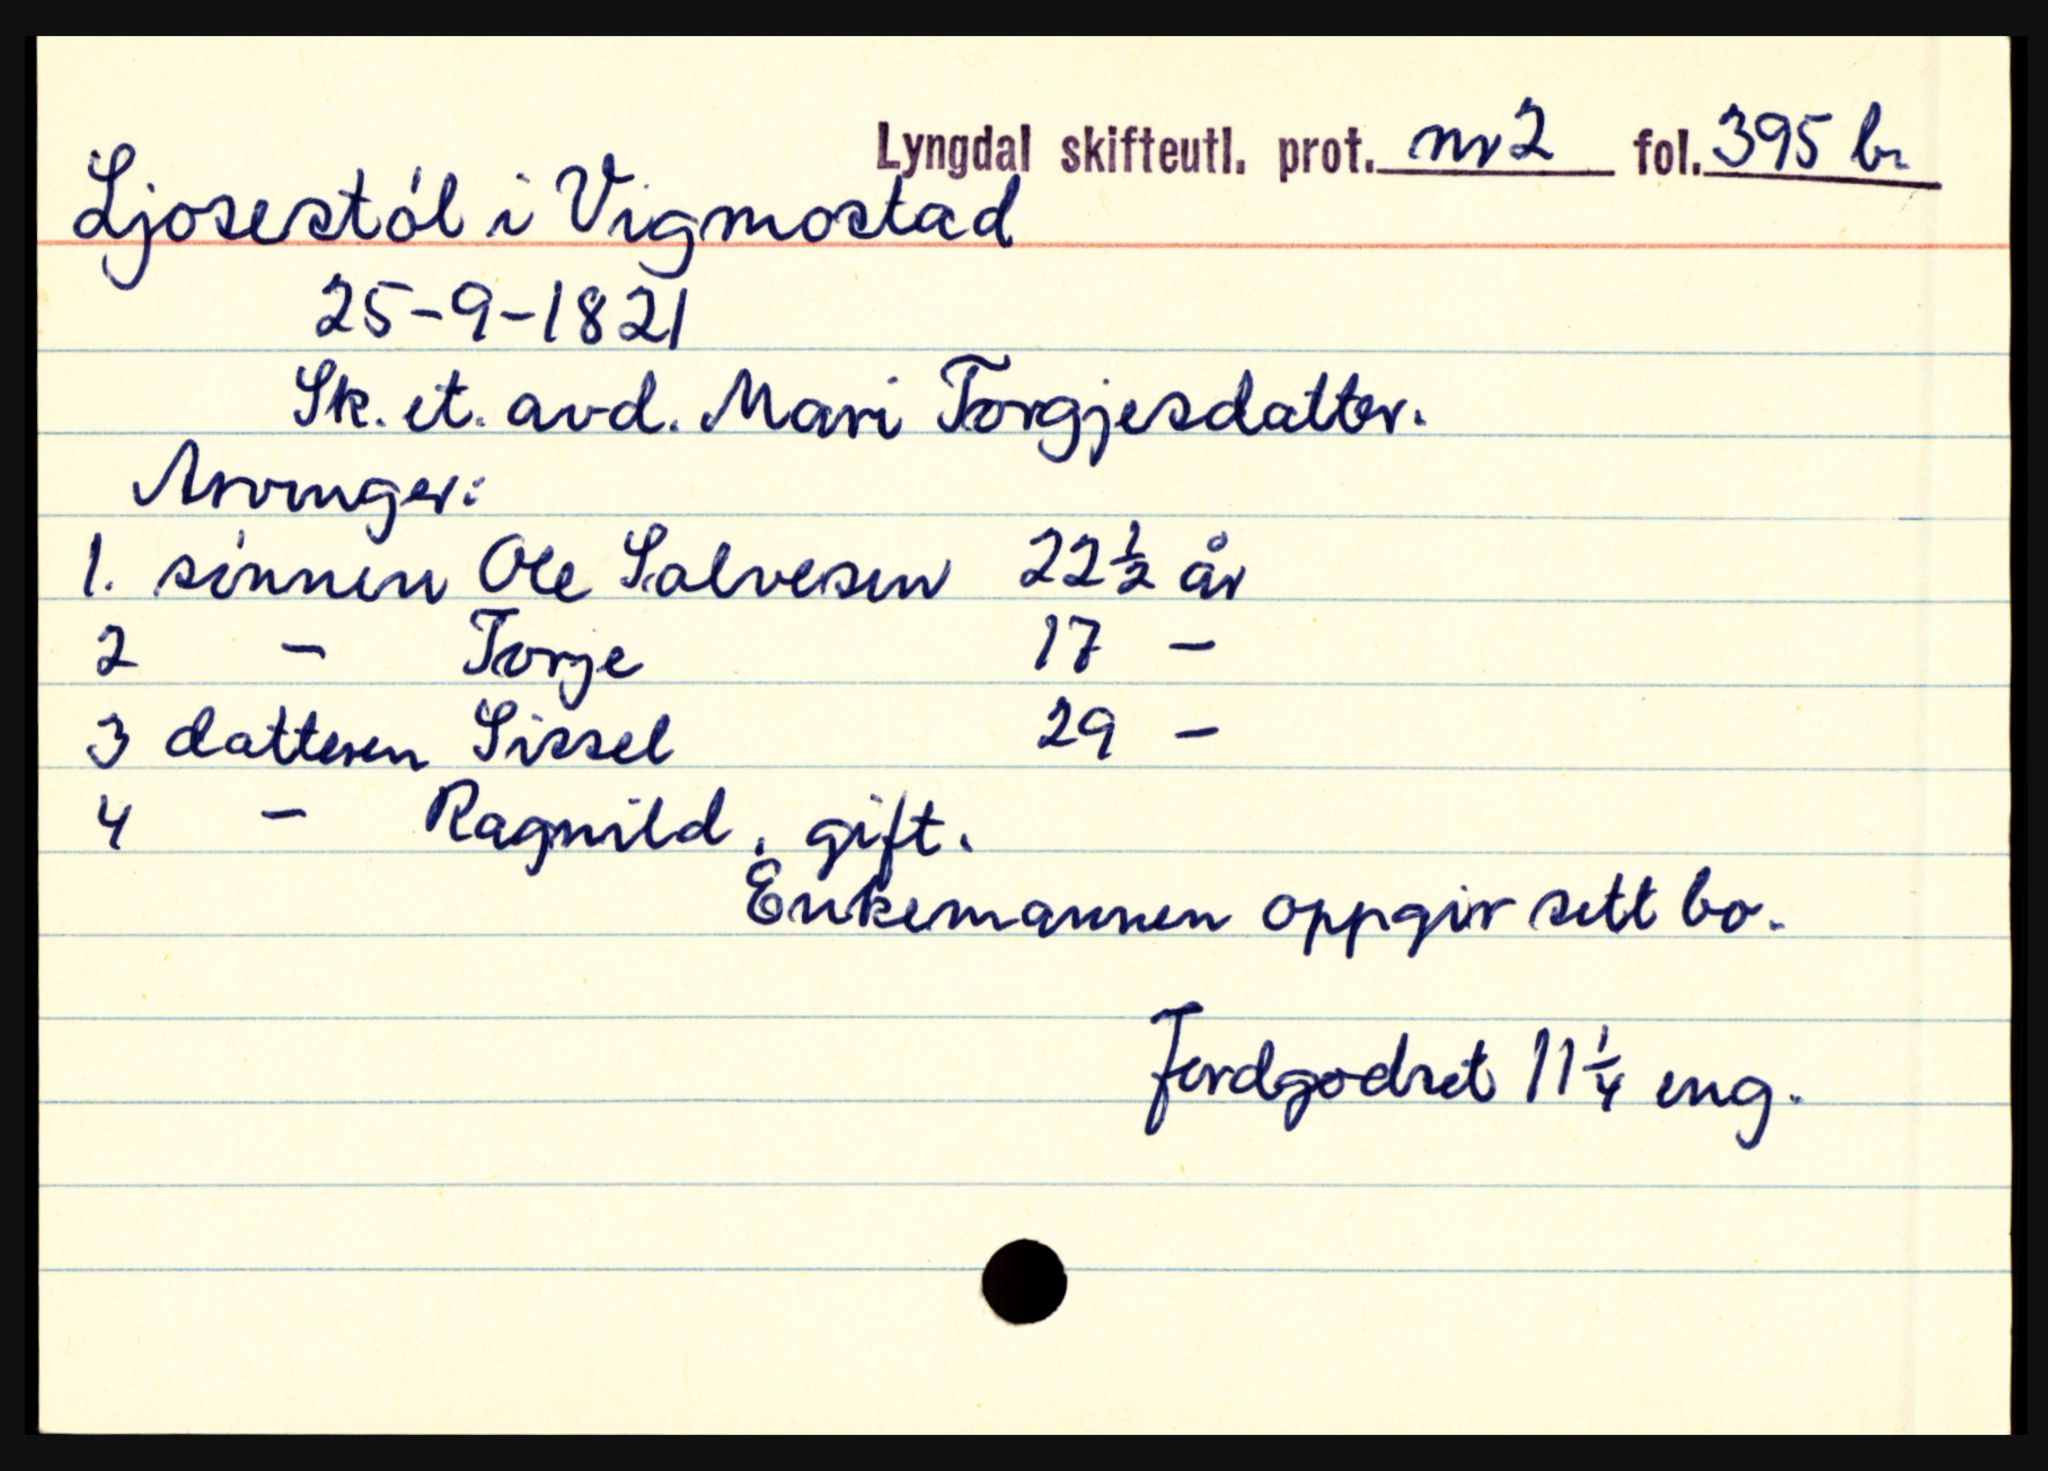 Lyngdal skifteutl. prot. nr 2 fol. 395 b.
Ljosestól i Vigmostad
25-9-1821
Sk. et. avd. Mari Torgjesdatter.
Arvinger:
1. sónnen Ole Salvesen 22 1/2 år
2 - Torje 17 -
3 datteren Sissel 29 -
4 - Ragnild, gift.
Enkemannen oppgir sitt bo.
Jordgodset 11 1/4 eng.